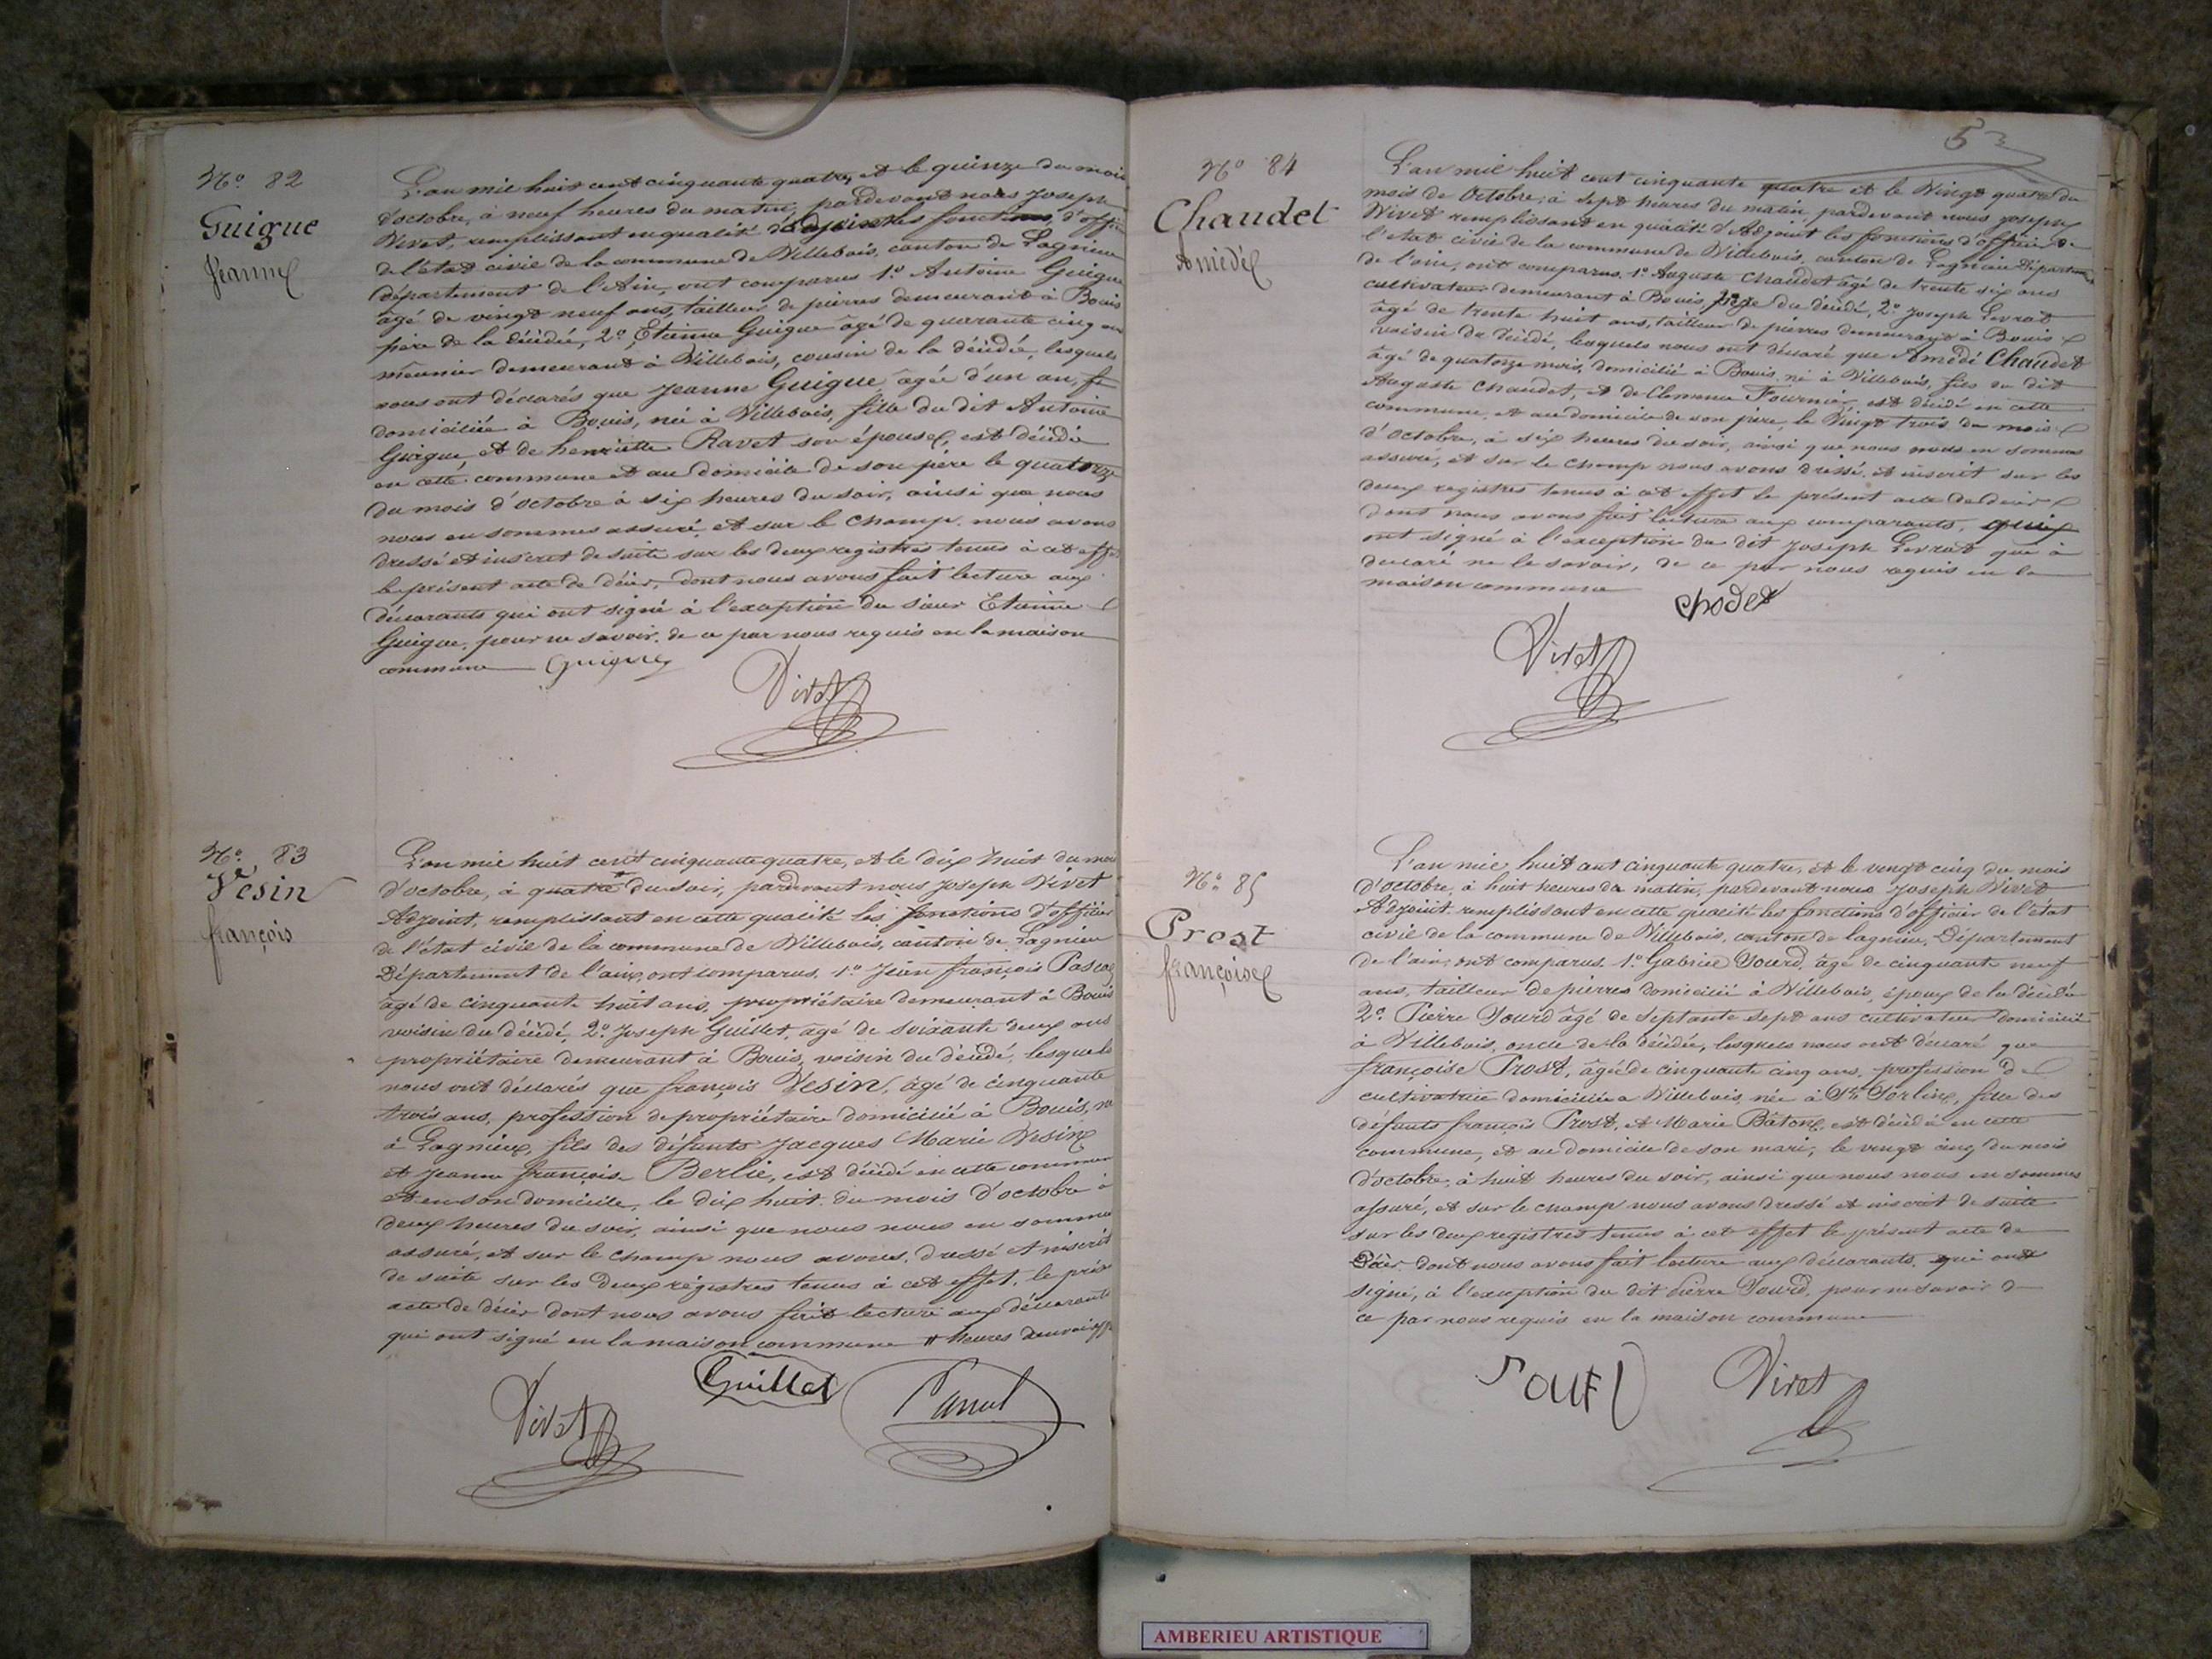 Nº 82
Guigue
Jeanne
L'an mil huit cent cinquante quatre, et le quinze du mois
d'octobre, à neuf heures du matin, pardevant nous Joseph
Vivet, remplissant en qualité d'adjoint les fonctions d'officier
de l'état civil de la commune de Villebois, canton de Lagnieu
département de l'Ain, ont comparus 1º Antoine Guigue
âgé de vingt neuf ans, tailleur de pierres demeurant à Bouis
père de la décédée, 2º, Etienne Guigue âgé de quarante cinq ans
meunier demeurant à Villebois, cousin de la décédée, lesquels
nous ont déclarés que Jeanne Guigue, âgée d'un an,
domiciliée à Bouis, née à Villebois, fille du dit Antoine
Guigue, et de henriette Ravet son épouse, est décédée
en cette commune et au domicile de son père le quatorze
du mois d'octobre à six heures du soir, ainsi que nous
nous en sommes assuré, et sur le champ. nous avons
dressé et inscrit de suite sur les deux registres tenus à cet effet
le présent acte de décès, dont nous avons fait lecture aux
déclarants qui ont signé à l'exception du sieur Etienne
Guigue, pour ne savoir. de ce par nous requis en la maison
commune Guigue
Vivet
Nº 83
Vesin
françois
L'an mil huit cent cinquante quatre, et le dix huit du mois
d'octobre, à quatre # du soir, pardevant nous Joseph Vivet
Adjoint, remplissant en cette qualité les fonctions d'officier
de l'état civil de la commune de Villebois, canton de Lagnieu
Département de l'ain, ont comparus, 1º Jean françois Pascal
âgé de cinquante huit ans, propriétaire demeurant à Bouis
voisin du décédé, 2º Joseph Guillet, âgé de soixante deux ans
propriétaire demeurant à Bouis, voisin du décédé, lesquels
nous ont déclarés que françois Vesin, âgé de cinquante
trois ans, profession de propriétaire domicilié à Bouis, né
à Lagnieu, fils des défunts Jacques Marie Vesin
et Jeanne françoise Berlie, est décédé en cette commune
et en son domicile, le dix huit du mois d'octobre à
deux heures du soir, ainsi que nous nous en sommes
assuré, et sur le champ nous avons, dressé et inscrit
de suite sur les deux régistres tenus à cet effet, le présent
acte de décès dont nous avons fait lecture aux déclarants
qui ont signé en la maison commune # heures
Vivet Guillet Pascal
53
Nº 84
Chaudet
Amédé
L'an mil huit cent cinquante quatre et le Vingt quatre du
mois de Octobre, à sept heures du matin, pardevant nous Joseph
Vivet remplissant en qualité d'Adjoint les fonctions d'officier de
l'état civil de la commune de Villebois, canton de Lagnieu Département
de l'ain, ont comparus. 1º Auguste Chaudet âgé de trente six ans
cultivateur demeurant à Bouis, père du décédé, 2º Joseph Levrat
âgé de trente huit ans, tailleur de pierres demeurant à Bouis
voisin du décédé, lesquels nous ont déclaré que Amédé Chaudet
âgé de quatorze mois, domicilié à Bouis, né à Villebois, fils du dit
Auguste Chaudet, et de Clemence Fournier, est décédé en cette
commune, et au domicile de son père, le Vingt trois du mois
d'octobre, à six heures du soir, ainsi que nous nous en sommes
assuré, et sur le champ nous avons dressé et inscrit sur les
deux registres tenus à cet effet le présent acte de décès
dont nous avons fait lecture aux comparants, qui
ont signé à l'exception du dit Joseph Levrat qui à
declaré ne le savoir, de ce par nous requis en la
maison commune chodet
Vivet
Nº 85
Prost
françoise
L'an mil huit cent cinquante quatre, et le vingt cinq du mois
d'octobre, à huit heures du matin, pardevant nous Joseph Vivet
Adjoint remplissant en cette qualité les fonctions d'officier de l'état
civil de la commune de Villebois, canton de lagnieu, Département
de l'ain, ont comparus. 1º Gabriel Sourd, âgé de cinquante neuf
ans, tailleur de pierres domicilié à Villebois, époux de la décédée
2º Pierre Sourd âgé de septante sept ans cultivateur domicilié
à Villebois, oncle de la décédée, lesquels nous ont déclaré que
françoise Prost, âgée de cinquante cinq ans, profession de
cultivatrice domiciliée a Villebois, née à St Sorlin, fille des
défunts françois Prost, et Marie Bâton, est décédée en cette
commune, et au domicile de son mari, le vingt cinq du mois
d'octobre, à huit heures du soir, ainsi que nous nous en sommes
assuré, et sur le champ nous avons dressé et inscrit de suite
sur les deux registres tenus à cet effet le présent acte de
Décès dont nous avons fait lecture aux déclarants qui ont
signé, à l'exception du dit Pierre Sourd, pour ne savoir de
ce par nous requis en la maison commune
Vivet
AMBERIEU ARTISTIQUE